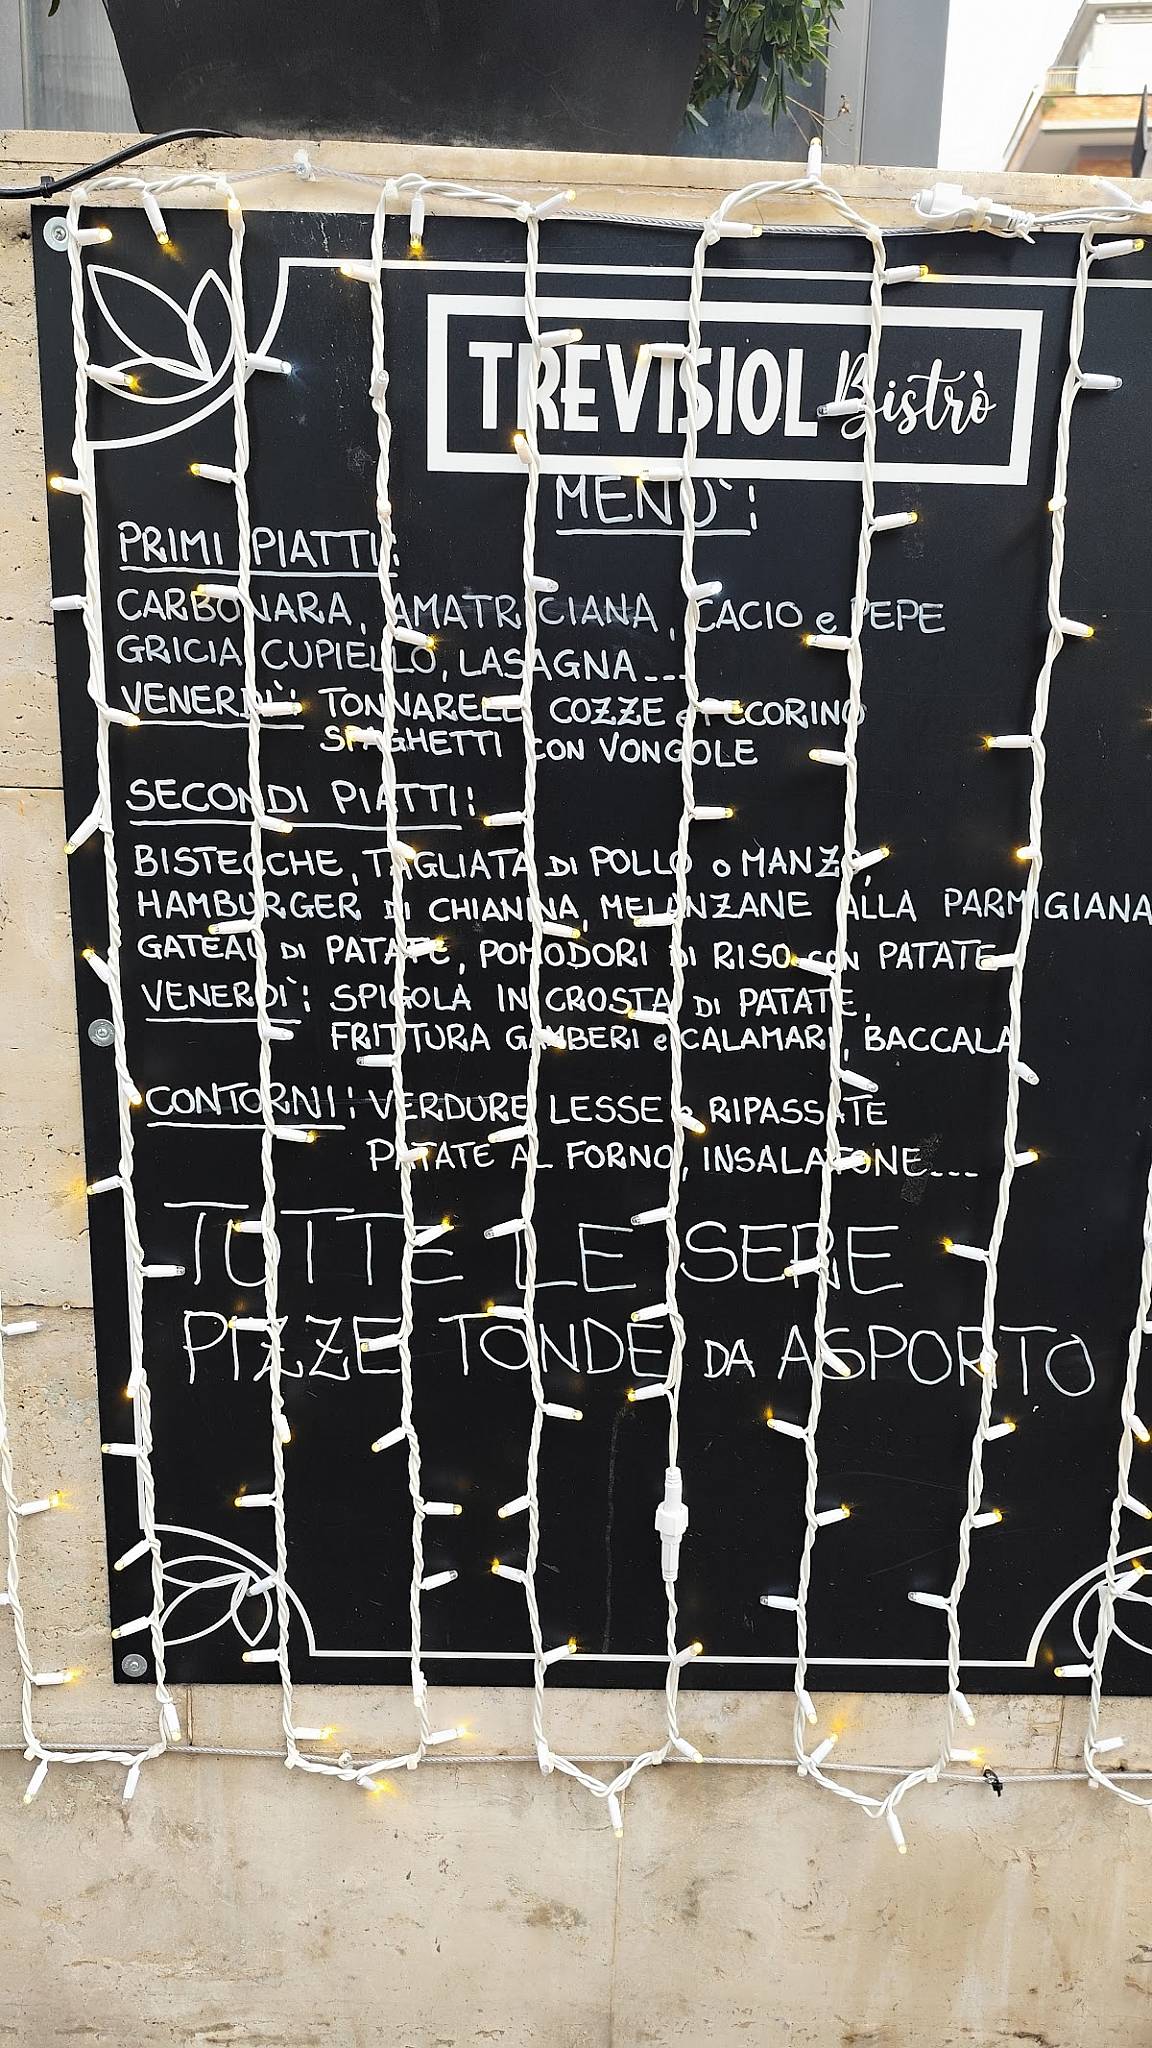 TREVISIOL Bistrò
MENÙ:
PRIMI PIATTI:
CARBONARA, AMATRICIANA, CACIO e PEPE
GRICIA, CUPIELLO, LASAGNA---
VENERDÌ: TONNARELLI COZZE e PECORINO
SPAGHETTI CON VONGOLE
SECONDI PIATTI:
BISTECCHE, TAGLIATA DI POLLO o MANZO,
HAMBURGER DI CHIANINA, MELANZANE ALLA PARMIGIANA
GATEAU DI PATATE, POMODORI DI RISO CON PATATE
VENERDÌ: SPIGOLA IN CROSTA DI PATATE,
FRITTURA GAMBERI e CALAMARI, BACCALA
CONTORNI: VERDURE LESSE e RIPASSATE
PATATE AL FORNO, INSALATONE---
TUTTE LE SERE
PIZZE TONDE DA ASPORTO